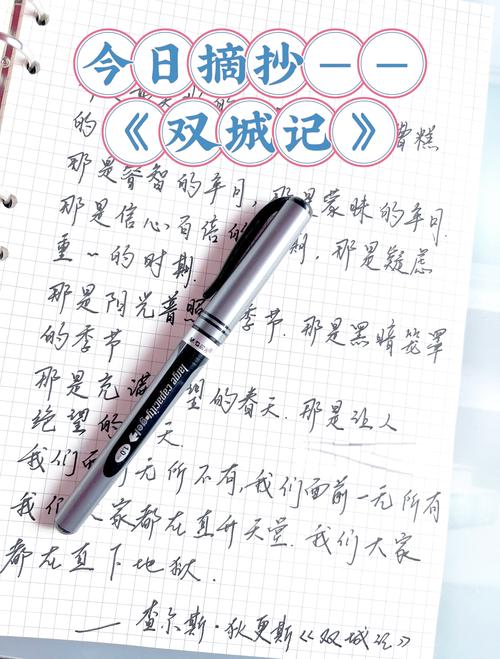 今日摘抄——
《双城记》
的
糟糕
那是睿智的年月,那是蒙昧的年月.
那是信心百倍的 期,那是疑虑
重重的时期.
那是阳光普照 季节.那是黑暗笼罩
的季节
那是充满 望的春天.那是让人
绝望的 天.
我们面 无所不有,我们面前一无所有
我们 家都在直升天堂.我们大家
都在直下地狱.
——查尔斯·狄更斯《双城记》
M&G
large capacity gel
1.0